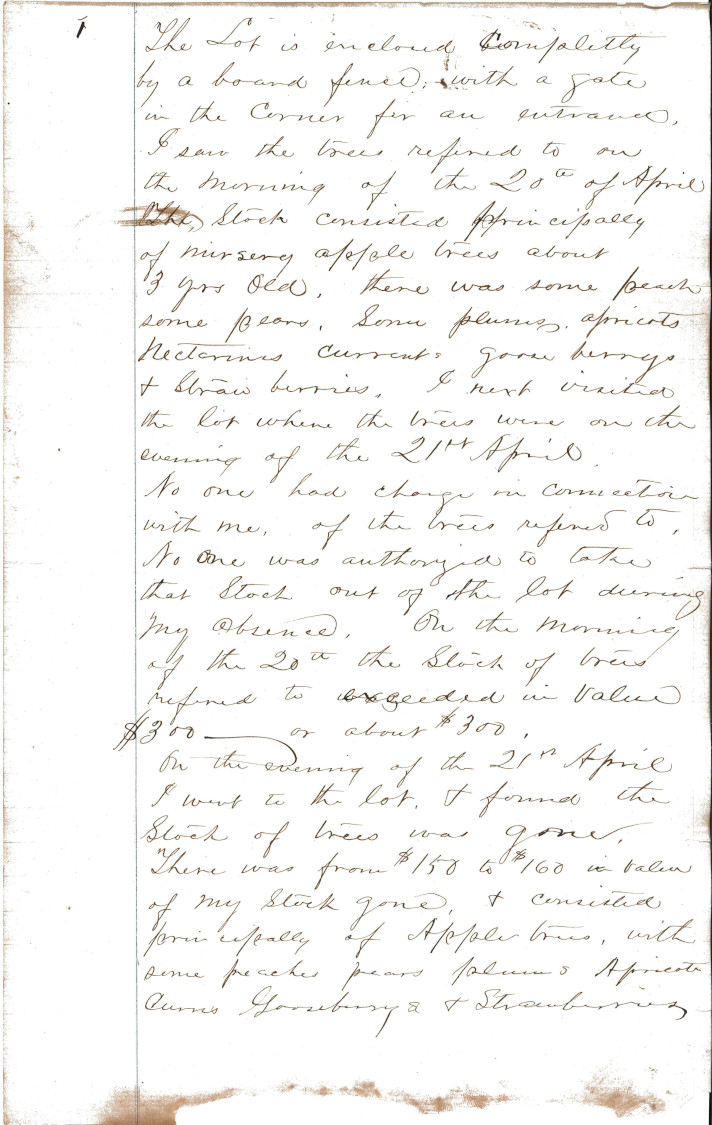 1
The Lot is enclosed Completly
by a board fence, with a gate
in the Corner for an entrance.
I saw the trees refered to on
the morning of the 20th of April
The, Stock consisted principally
of nursery apple trees about
3 yrs Old, there was some peach
some pears, Some plums, apricots
Nectarines currents goose berrys
& Straw berries. I next visited
the lot where the trees were on the
evening of the 21st April.
No one had charge in connection
with me, of the trees refered to.
No One was authorized to take
that Stock out of the lot durring
my absence. On the morning
of the 20th the Stock of trees
refered to exceeded in Value
$300 or about $300.
On the evening of the 21st April
I went to the lot, & found the
Stock of trees was gone.
There was from $150 to $160 in value
of my Stock gone, & consisted
principally of Apple trees, with
some peaches pears plums Apricots
Gooseburrys & Strawberries